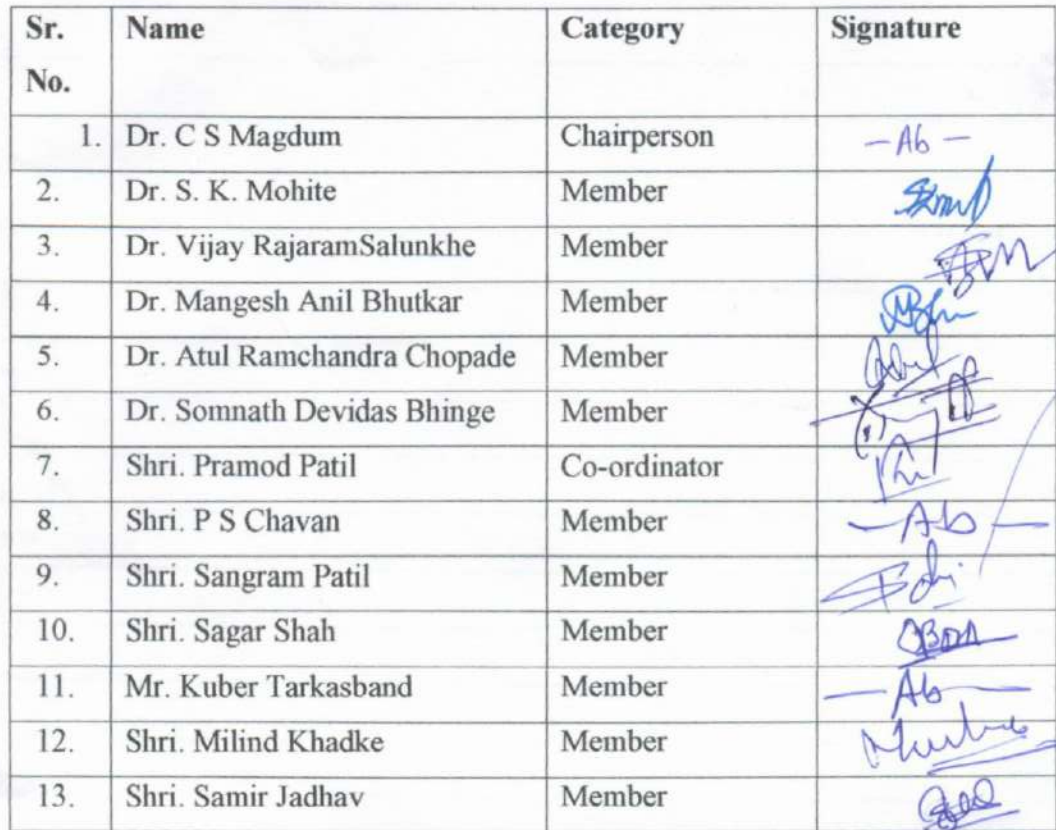 Sr. No. Name Category Signature
1. Dr. C S Magdum Chairperson — Ab —
2. Dr. S. K. Mohite Member
3. Dr. Vijay RajaramSalunkhe Member
4. Dr. Mangesh Anil Bhutkar Member
5. Dr. Atul Ramchandra Chopade Member
6. Dr. Somnath Devidas Bhinge Member
7. Shri. Pramod Patil Co-ordinator
8. Shri. P S Chavan Member — Ab —
9. Shri. Sangram Patil Member
10. Shri. Sagar Shah Member
11. Mr. Kuber Tarkasband Member — Ab —
12. Shri. Milind Khadke Member
13. Shri. Samir Jadhav Member